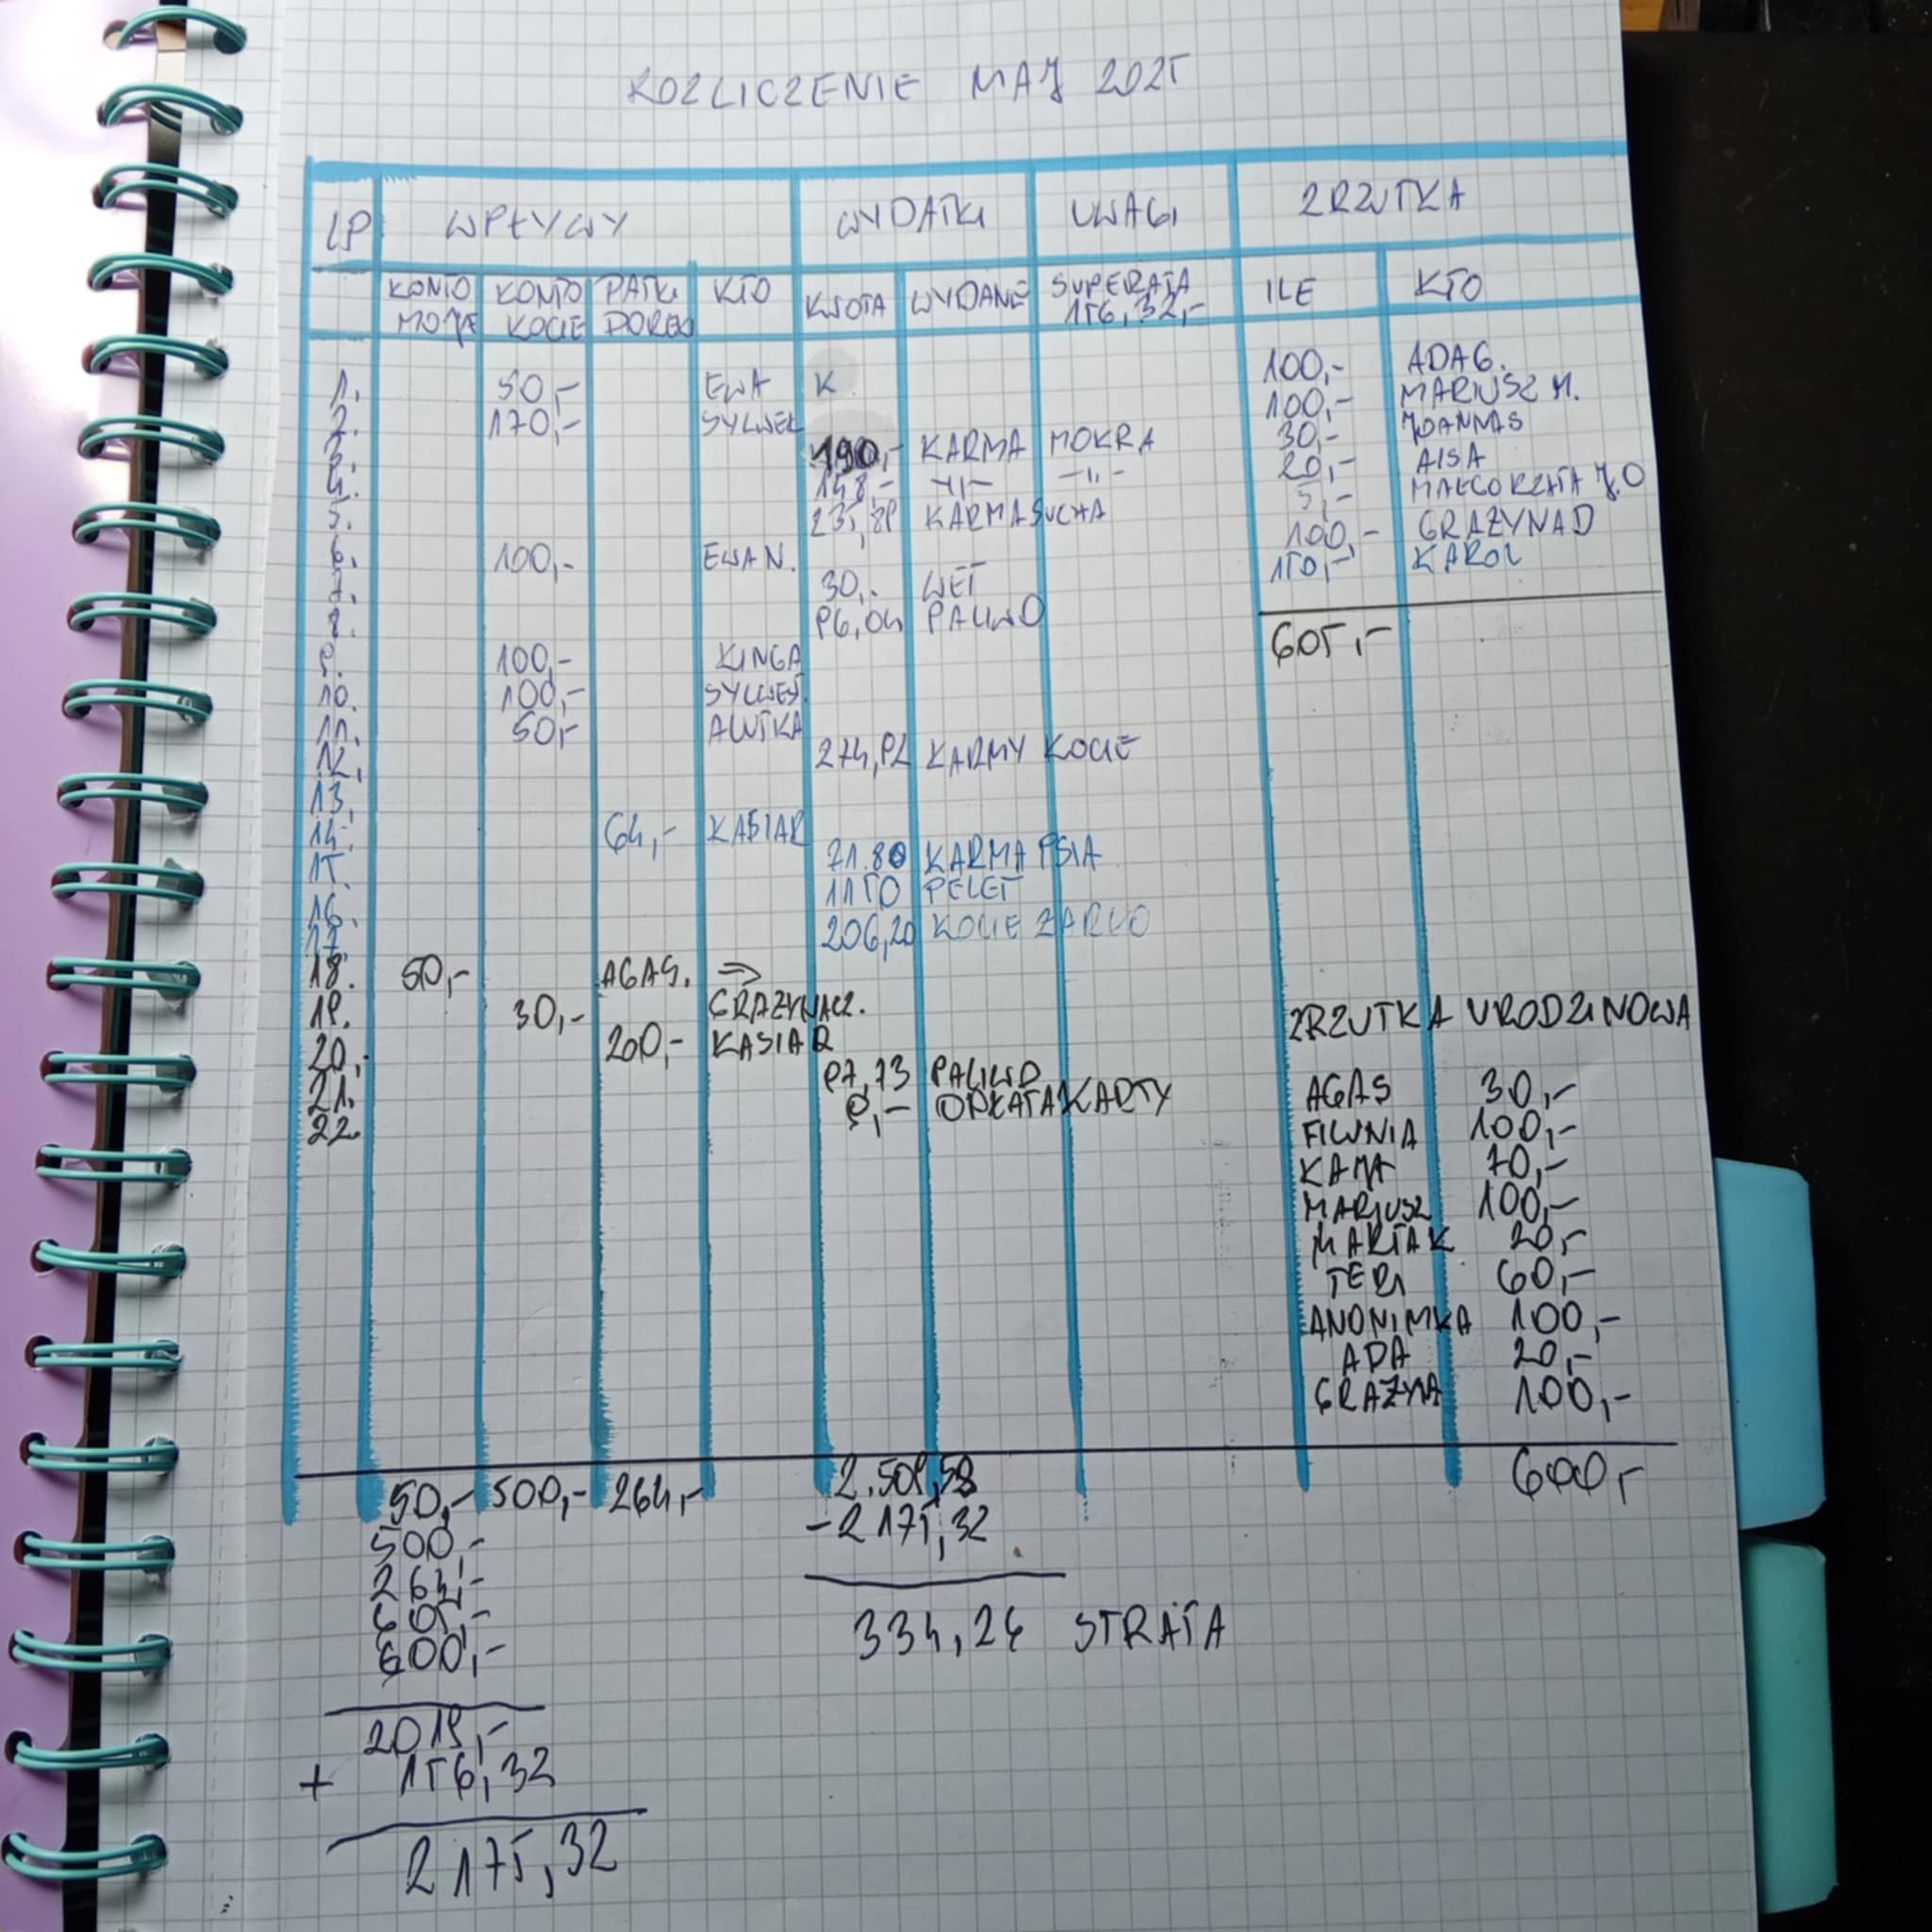 ROZLICZENIE MAJ 2025
LP WPŁYWY WYDATKI UWAGI ZRZUTKA
KONTO MOJE KONTO KOCIE KTO KWOTA WYDANE SUPERATA 156,32,- ILE KTO
100,- ADA G.
1. 50,- EWA K. 100,- MARIUSZ M.
2. 170,- SYLWEK 30,- JOANNAS
3. 190,- KARMA MOKRA 20,- AISA
4. 148,- -11- -11- 5,- MAŁGORZATA J.O
5. 235,99 KARMA SUCHA 100,- GRAŻYNA D
6. 100,- EWA N. 150,- KAROL
7. 30,- WET
8. 96,04 PALIWO 605,-
9. 100,- KINGA
10. 100,- SYLWES.
11. 50,- ALUTKA
12. 274,92 KARMY KOCIE
13.
14. 64,- KASIA R
15. 71.80 KARMA PSIA
16. 1150 PELET
17. 206,20 KOCIE ŻARŁO
18. 50,- AGA S. ⇒
19. 30,- GRAŻYNA CZ. ZRZUTKA URODZINOWA
20. 200,- KASIA R
21. 97,73 PALIWO AGA S 30,-
22. 9,- OPŁATA KARTY FILUNIA 100,-
KAMA 70,-
MARIUSZ 100,-
MARTA K 20,-
TERI 60,-
ANONIMKA 100,-
ADA 20,-
GRAŻYNA 100,-
50,- 500,- 264,- 2.509,58 600,-
500,- -2175,32
264,-
605,- 334,26 STRATA
600,-
2019,-
+ 156,32
2175,32